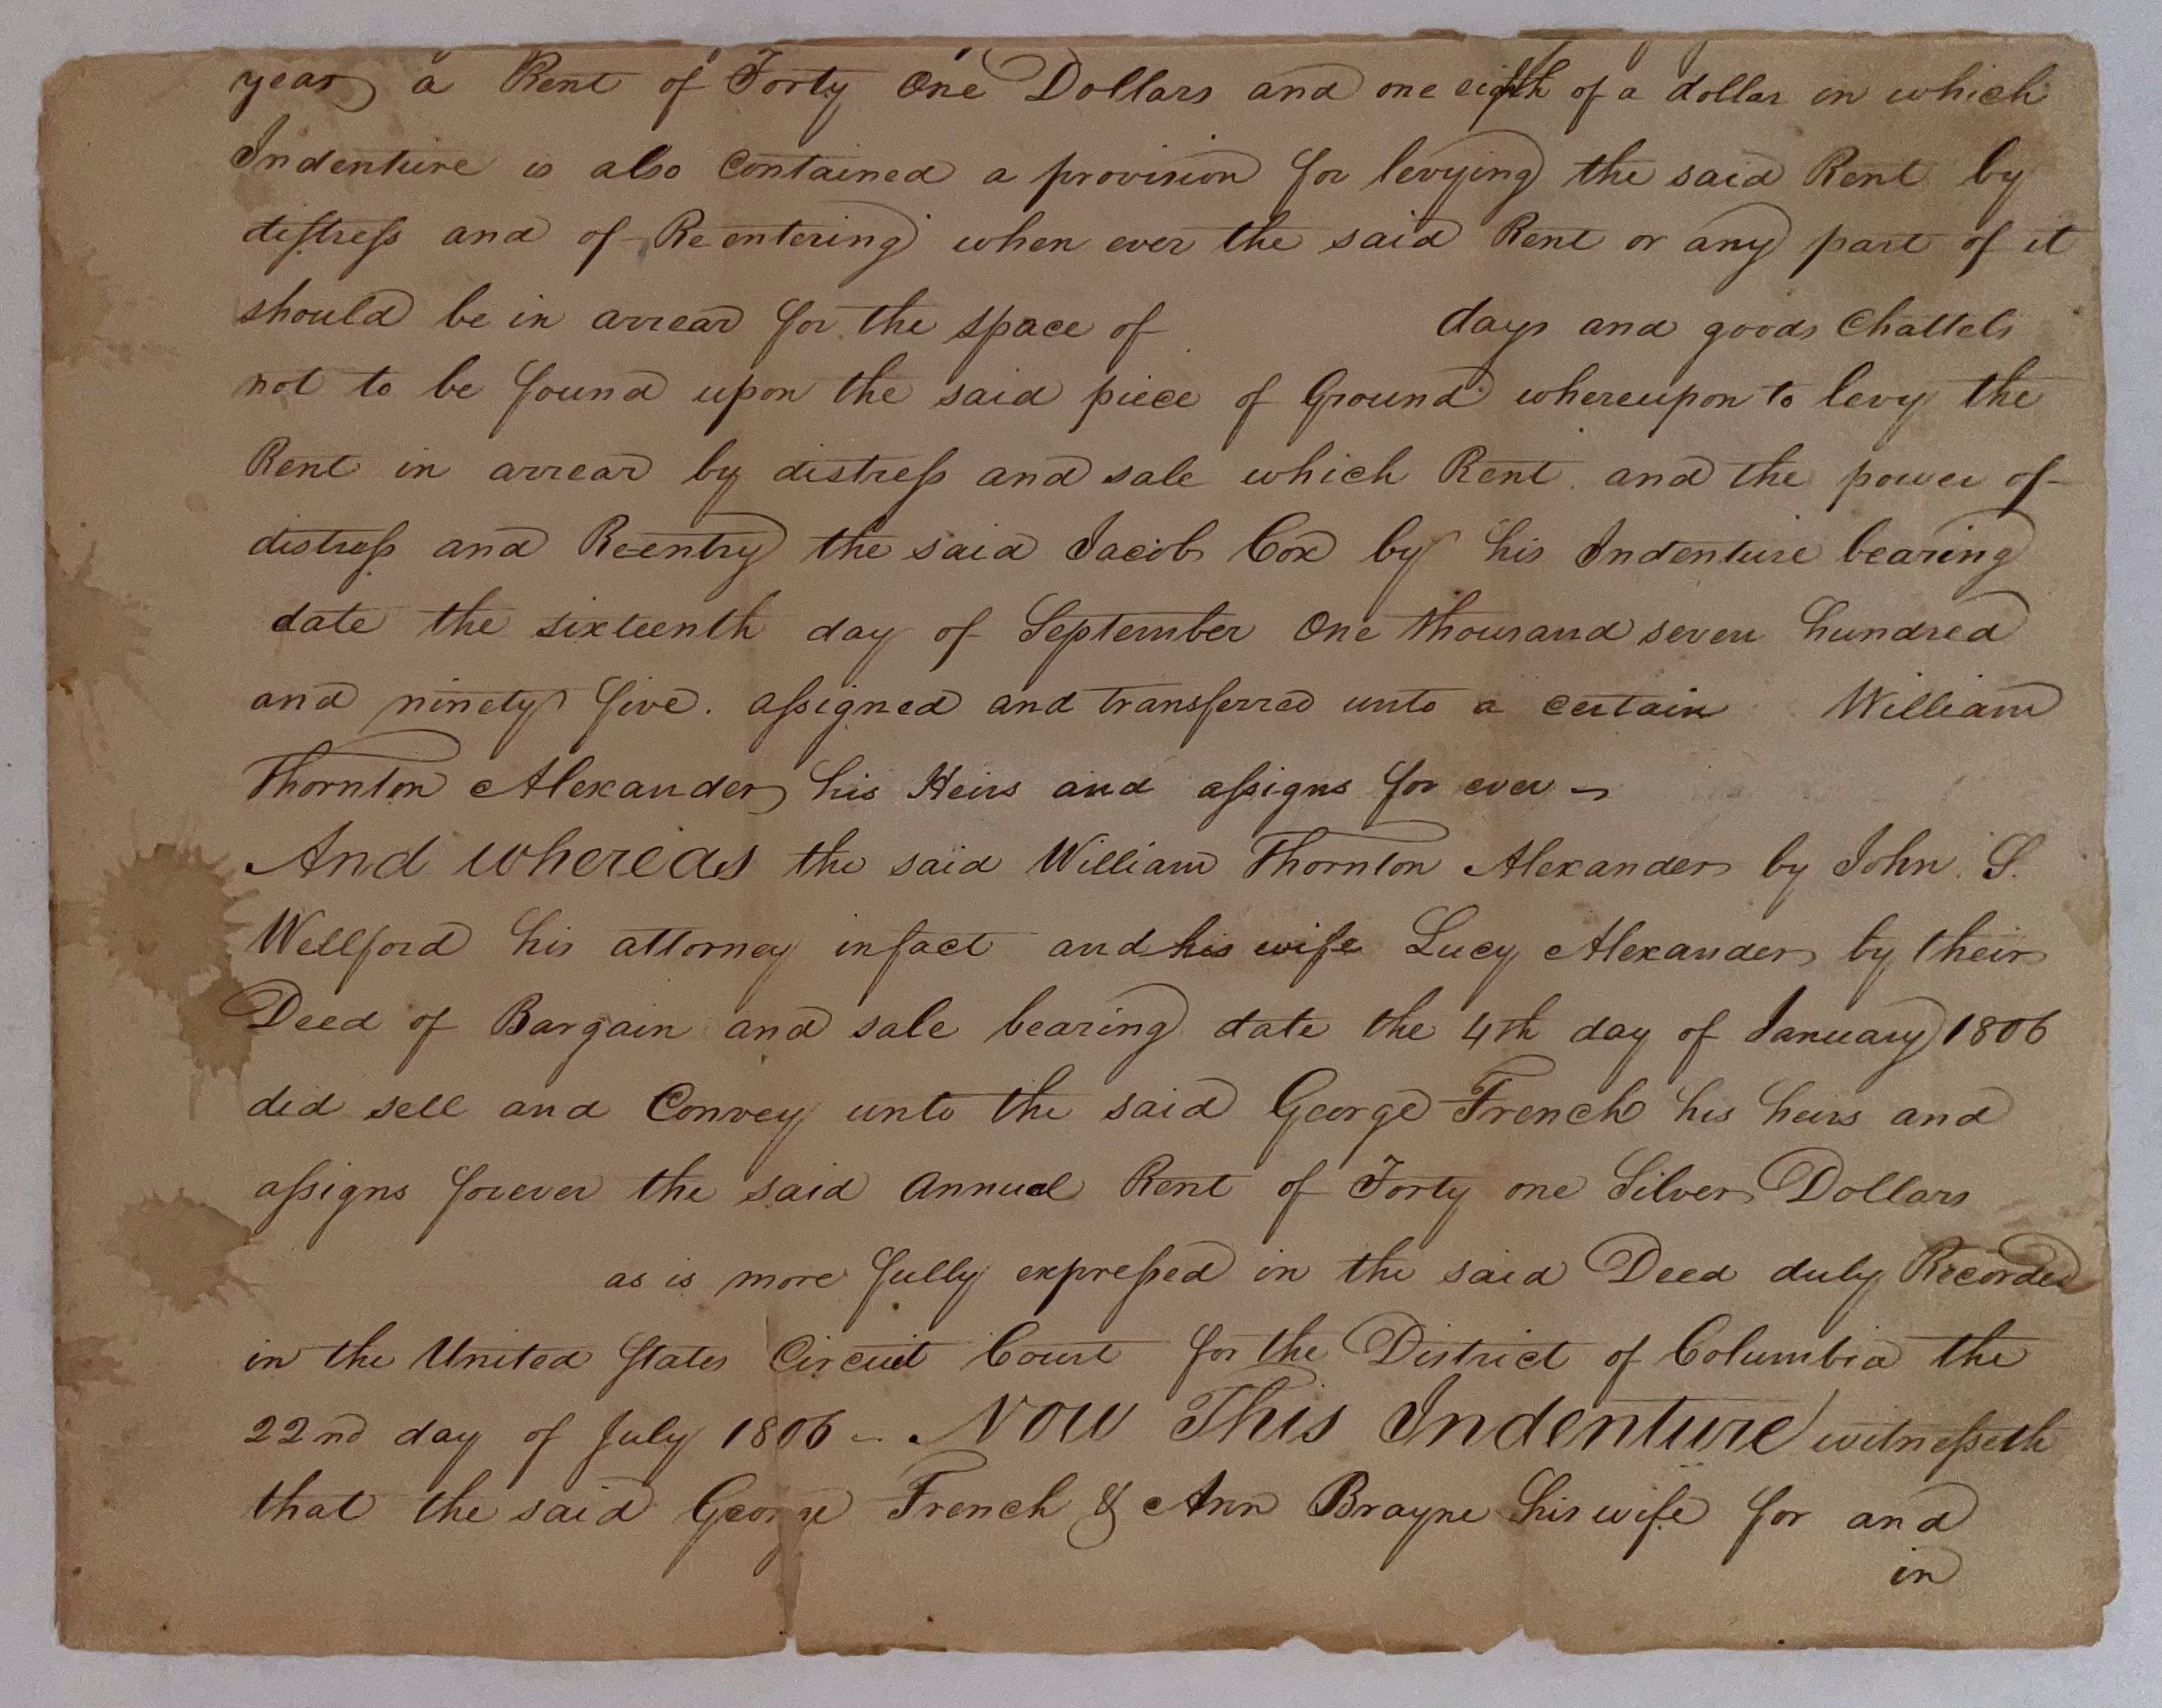 year a Rent of Forty One Dollars and one eighth of a dollar in which
Indenture is also Contained a provision for levying the said Rent by
distress and of Reentering when ever the said Rent or any part of it
should be in arrear for the space of days and goods Chattels
not to be found upon the said piece of Ground whereupon to levy the
Rent in arrear by distress and sale which Rent and the power of
distress and Reentry the said Jacob Cox by his Indenture bearing
date the sixteenth day of September One thousand seven hundred
and ninety five. assigned and transferred unto a certain William
Thornton Alexander his Heirs and assigns for ever -
And whereas the said William Thornton Alexander by John S.
Wellford his attorney in fact and his wife Lucy Alexander by their
Deed of Bargain and sale bearing date the 4th day of January 1806
did sell and Convey unto the said George French his heirs and
assigns forever the said annual Rent of Forty one Silver Dollars
as is more fully expressed in the said Deed duly Recorded
in the United States Circuit Court for the District of Columbia the
22nd day of July 1806 - Now This Indenture witnesseth
that the said George French & Ann Brayne his wife for and
in